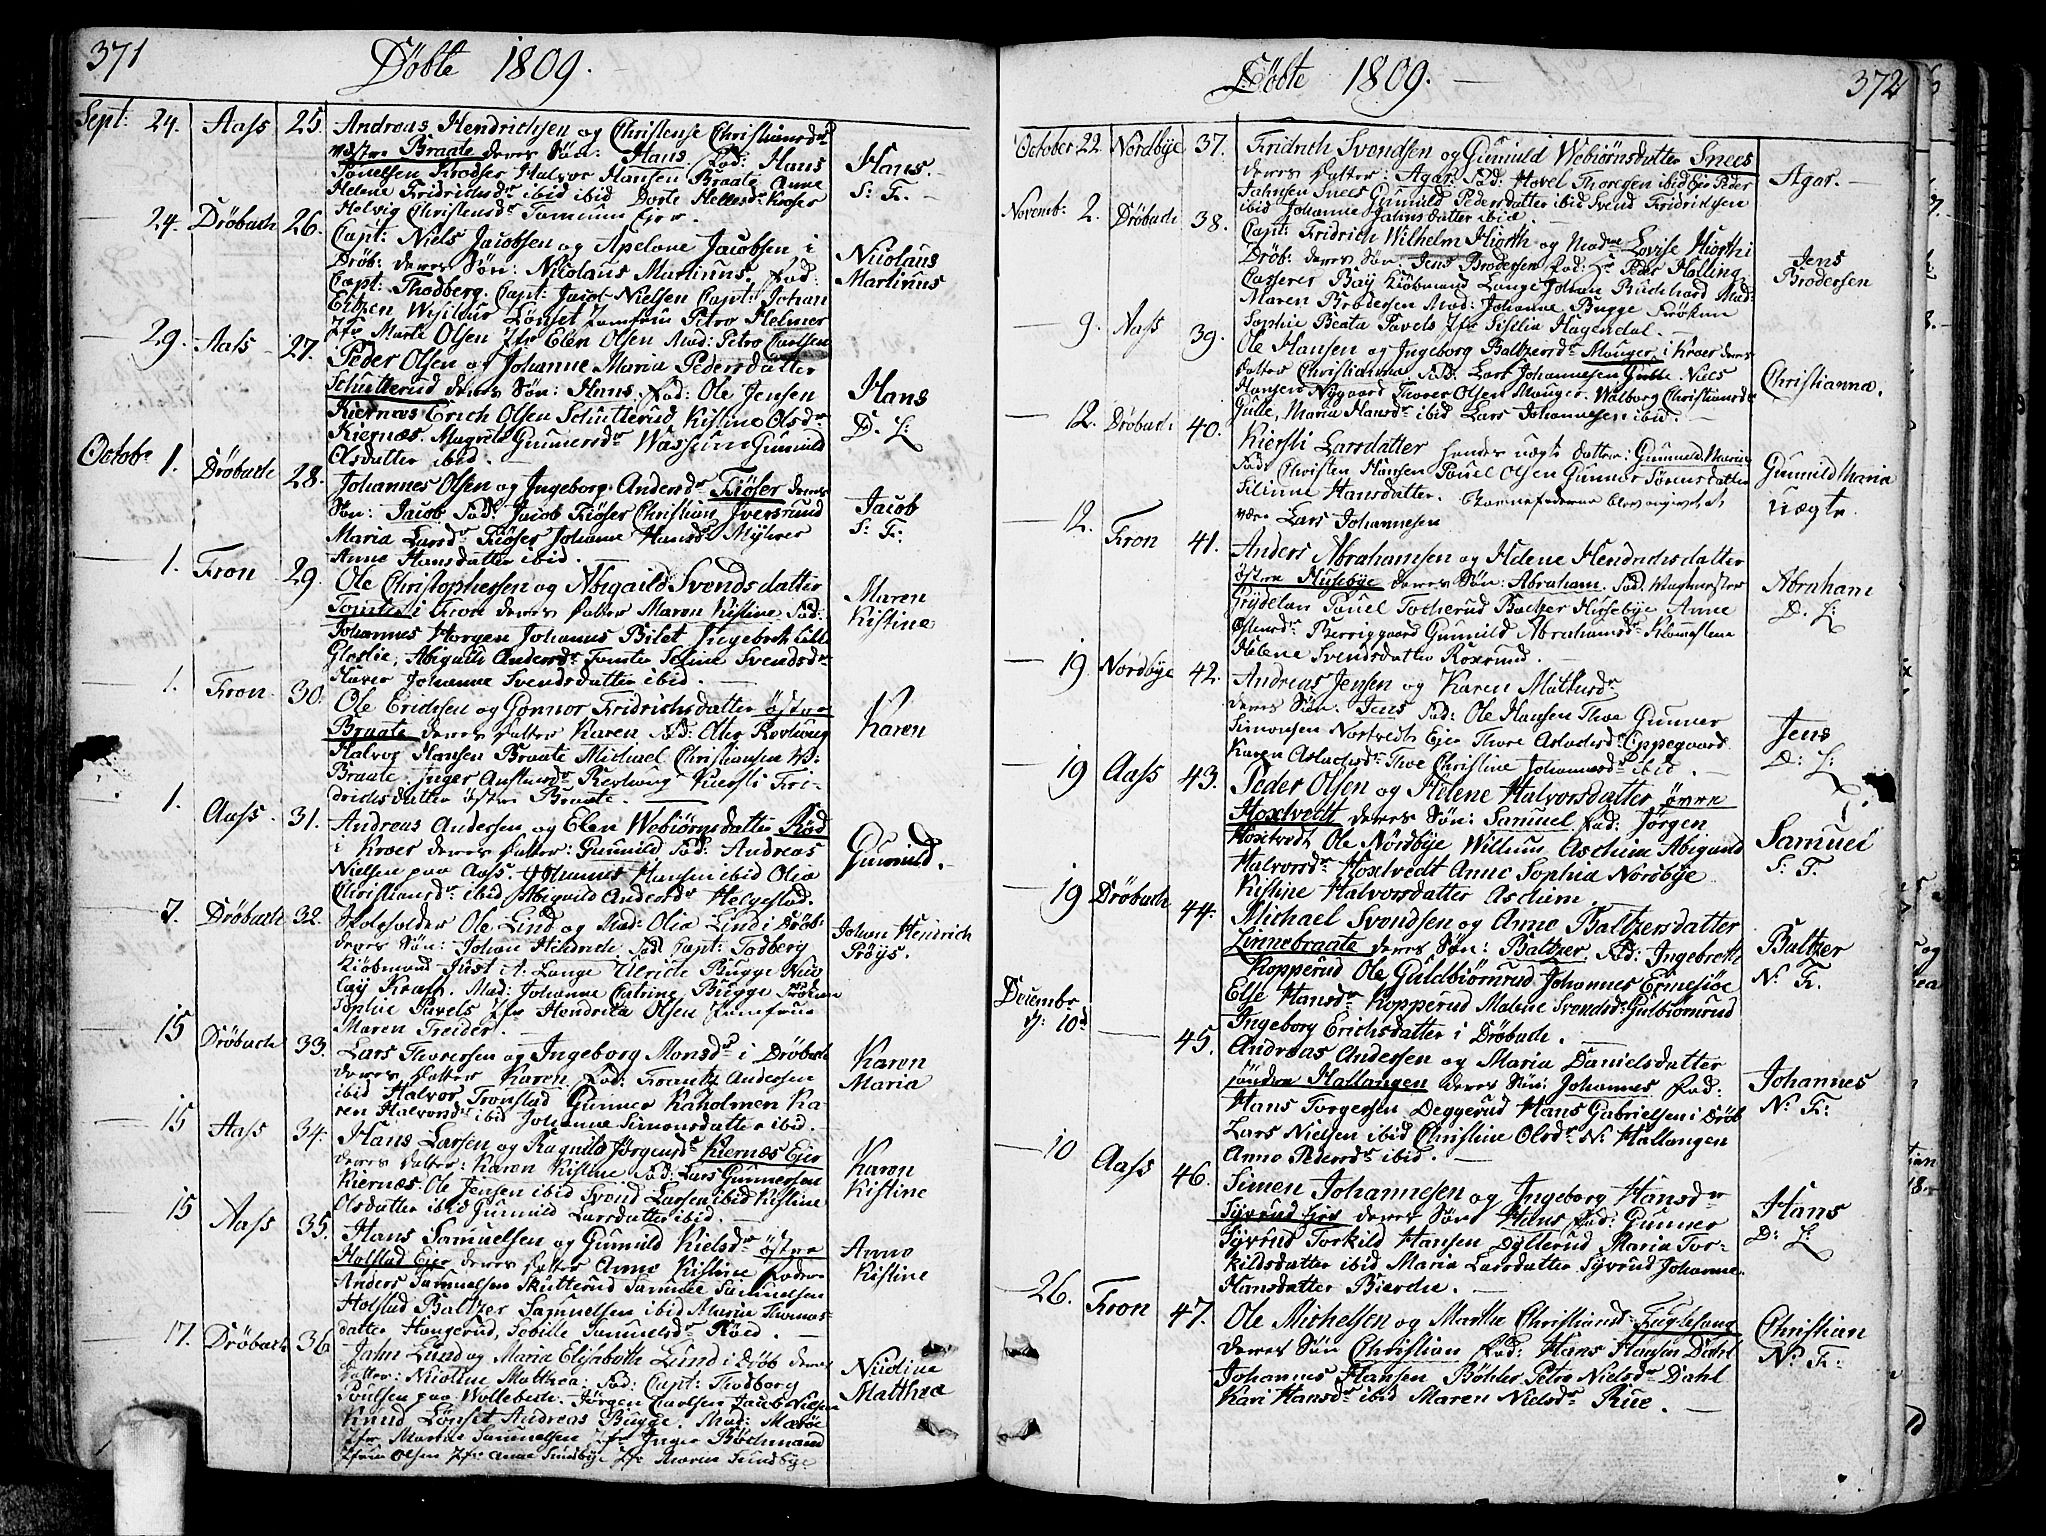 371
Döbte 1809.
Sept: 24. Aass 25. Andreas Hendrichsen og Christense Christiansdr
Braate deres Sön: Hans Fad: Hans
Halvor Hansen Braate Anne
Helene Fridrichsdr ibid ibid Dorte
Helvig Christensdr
Hans.
S: F.
24. Dröbach 26. Capt: Niels Jacobsen og Apelone Jacobsen i
Dröb: deres Sön: Nicolaus Martinus. Fad:
Capt: Thodberg. Capt: Jacob Nielsen Capt: Johan
Lönset Jomfru Petro Helmer
Jfr Marte Olsen Jfr Elen Olsen Mad: Petro Carlsen
Nicolaus
Martinus
29. Aass 27. Peder Olsen og Johanne Maria Pedersdatter
Schutterud deres Sön: Hans. Fad: Ole Jensen
Kiernæs Erich Olsen Schutterud Kistine Olsdr
Kiernæs. Gunnersdr Gunnild
Olsdatter ibid.
Hans
D. L:
Octobr 1. Dröbach 28. Johannes Olsen og Ingeborg Andersdr Fiöser deres
Sön: Jacob Fad: Jacob Fiöser Christian
Maria Larsdr Fiöser Johanne Hansdr
Anne Hansdatter ibid.
Jacob
S: F:
1. Fron 29. Ole Christophersen og Abigaild Svendsdatter
Tomte i Fron deres Datter Maren Kistine Fad:
Johannes Horgen Johannes Bilet Ingebreth
Gloslie, Abigaild Andersdr Tomte Svendsdr
Johanne Svendsdatter ibid.
Maren
Kistine
1. Fron 30. Ole Erichsen og Gonnor Fridrichsdatter östre
Braate deres Datter Karen Fad:
Halvor Hansen Braate Michael Christiansen
Braate. Inger Kiersti Fri-
drichsdatter östre Braate.
Karen
1. Aass 31. Andreas Andersen og Elen Webiörnsdatter Röd
i Kroer deres Datter: Gunnild Fad: Andreas
Nielsen paa Aass. Johannes Hansen ibid Olia
Christiansdr ibid Abigaild Andersdr Helgestad.
Gunnild.
7. Dröbach 32. Skoleholder Ole Lind og Mad: Olia Lind i Dröb:
deres Sön: Johan Hendrich. Fad Capt: Todberg
Kiöbmand Just A. Lange Ulrich Bugge
Kraft. Mad: Johanne Catrine Bugge
Sophie Pavels Jfr Hendrica Olsen Jomfrue
Maren Treider.
Johan Hendrich
Pröys.
15 Dröbach 33. Lars Thoresen og Ingeborg Monsdr i Dröbach
deres Datter Karen Fad: Frantz Andersen
ibid Halvor Tronstad Gunner Kaholmen Ka-
ren Halvorsdr ibid Johanne Simonsdatter ibid.
Karen
Maria
15 Aass 34. Hans Larsen og Ragnild Jörgensdr Kiernæs Eier
deres Datter: Karen Kistine Fad: Lars Gunnersen
Kiernæs Ole Jensen ibid Svend Larsen ibid Kistine
Olsdatter ibid Gunnild Larsdatter ibid.
Karen
Kistine
15 Aass 35. Hans Samuelsen og Gunnild Kielsdr östre
Holstad Eier deres Datter Anne Kistine Fadre
Anders Samuelsen Skutterud Samuel Samuelsen
Holstad Baltzer Samuelsen ibid Maria Thomas-
datter Haugerud, Sebille Samuelsdr Röed.
Anne
Kistine
17. Dröbach 36 Jahn Lund og Maria Elisabeth Lund i Dröb deres
Datter: Nicoline Matthea: Fad: Capt: Thodberg
Poulsen paa Wollebech. Jörgen Carlsen Jacob Nielsen
Knud Lönset Andreas Bugge. Mad:
Jfr Martha Samuelsen Jfr Inger
Olsen Jfr Anne Sundbye Jfr Maren Sundbye
Nicoline
Matthea
Döbte 1809.
372
October 22. Nordbye 37. Fridrich Svendsen og Gunnild Webiörnsdatter Snees
deres Datter: Agar. Fad: Hovel Thoresen ibid Eier Peder
Jahnsen Snees Gunnild Pedersdatter ibid Svend Fridrichsen
ibid Johanne Jahnsdatter ibid.
Agar.
Novemb: 2. Dröbach 38. Capt: Fridrich Wilhelm Hiorth og Madme Lovise Hiorth i
Dröb: deres Sön Jens Brodersen Fad: Hr Peder Holling.
Casserer Bay Kiöbmand Lange Johan Mad:
Maren Brodersen Mad: Johanne Bugge Fröken
Sophie Beata Pavels Jfr Sisilia Hagendal.
Jens
Brodersen
9. Aass 39. Ole Hansen og Ingeborg Baltzersdr Monger i Kroer deres
Datter Christianna Fad: Lars Johannesen Gulle Niels
Hansen Nygaard Thorer Olsen Monger. Walborg Christiansdr
Gulle, Maria Hansdr ibid Lars Johannesen ibid.
Christianna.
12. Dröbach 40. Kiersti Larsdatter hendes uægte Datter: Gunnild Maria
Fad: Christen Hansen Pouel Olsen Gunnor Sörensdatter
Hansdatter. Barnefaderen blev angivet at
være Lars Johannesen
Gunnild Maria
Uægte.
12. Fron 41. Anders Abrahamsen og Helene Hendrichsdatter
östre Husebye deres Sön: Abraham. Fad: Wagtmester
Grydeland Pouel Tocherud Baltzer Husebye Anne
Berriggaard Gunnild Abrahamsdr
Helene Svendsdatter
Abraham
D: L:
19. Nordbye 42. Andreas Jensen og Karen Mathisdr
deres Sön. Jens Fad: Ole Hansen Thoe Gunner
Simonsen Nortvedt Eier Thore Aslachsdr Oppegaard
Karen Aslachsdr Thoe Christine Johannesdr ibid.
Jens
D: L:
19 Aass 43. Peder Olsen og Helene Halvorsdatter övre
Hoxtvedt deres Sön: Samuel Fad: Jörgen
Hoxtvedt Ole Nordbye Willum Aschim Abigaild
Halvorsdr Hoxtvedt Anne Sophia Nordbye
Kistine Halvorsdatter Aschim.
Samuel
S: F.
19 Dröbach 44. Michael Svendsen og Anne Baltzersdatter
Linnebraate deres Sön: Baltzer Fad: Ingebreth
Kopperud Ole Guldbiörnrud Johannes Ermesiöe
Else Hansdr Kopperud Malene Svendsdr Gulbiörnrud
Ingeborg Erichsdatter i Dröbach.
Baltzer
N: F.
Decembr
d: 10d — 45. Andreas Andersen og Maria Danielsdatter
söndre Hallangen deres Sön: Johannes Fad:
Hans Torgersen Deggerud Hans Gabrielsen i Dröb
Lars Nielsen ibid Christine Olsdr N: Hallangen
Anne Pedersdr ibid.
Johannes
N: F:
10 Aass 46. Simen Johannesen og Ingeborg Hansdr
Syvrud Eier deres Sön Hans Fad: Gunner
Syvrud Torkild Hansen Dylterud Maria Tor-
kildsdatter ibid Maria Larsdatter Syvrud Johanne
Hansdatter Bierche.
Hans
D: L:
26. Fron 47. Ole Michelsen og Marthe Christiansdr Fuglesang
deres Sön Christian Fad: Hans Hansen Dahl
Johannes Hansen Böhler Petro Nielsdr Dahl
Kari Hansdr ibid Maren Nielsdr Rue.
Christian
N: F: